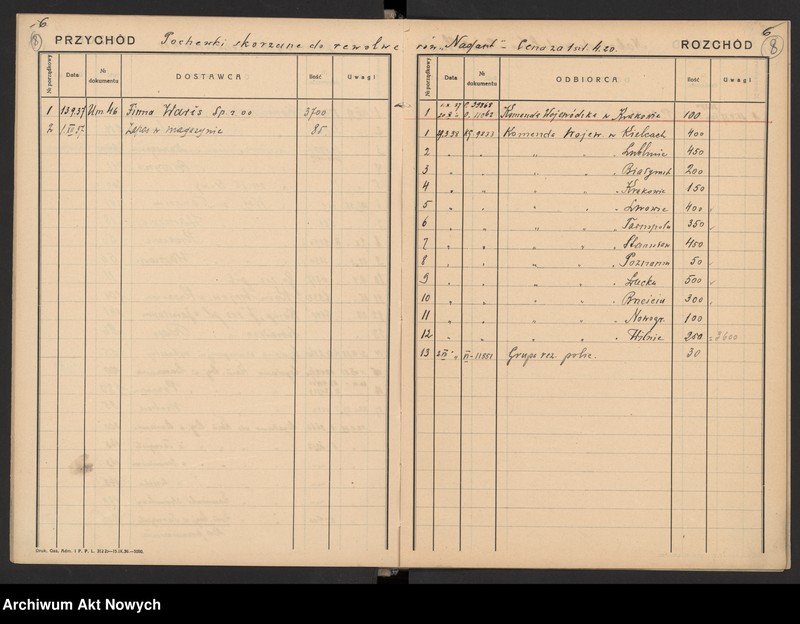 6
8 PRZYCHÓD Pochewki skórzane do rewolwe
№ porządkowy Data № dokumentu DOSTAWCA Ilość Uwagi
1 13.9.37 Um. 46 Firma Waris Sp. z oo 3700
2 Zapas w magazynie 85
Druk. Gaz. Adm. i P. P.
6
rów "Nagant" - Cena za 1 szt. 4.20. ROZCHÓD 8
№ porządkowy Data № dokumentu ODBIORCA Ilość Uwagi
1 Komenda Wojewódzka w Krakowie 100
1 Komenda Wojew. w Kielcach 400
2 " " " " Lublinie 450
3 " " " " Białymst 200
4 " " " " Krakowie 150
5 " " " " Lwowie 400
6 " " " " Tarnopolu 350
7 " " " " Stanisław 450
8 " " " " Poznaniu 50
9 " " " " Łucku 500
10 " " " " Brześciu 300
11 " " " " Nowogr. 100
12 " " " " Wilnie 250 = 3600
13 VI-11551 Grupa rez. polic. 30
Archiwum Akt Nowych